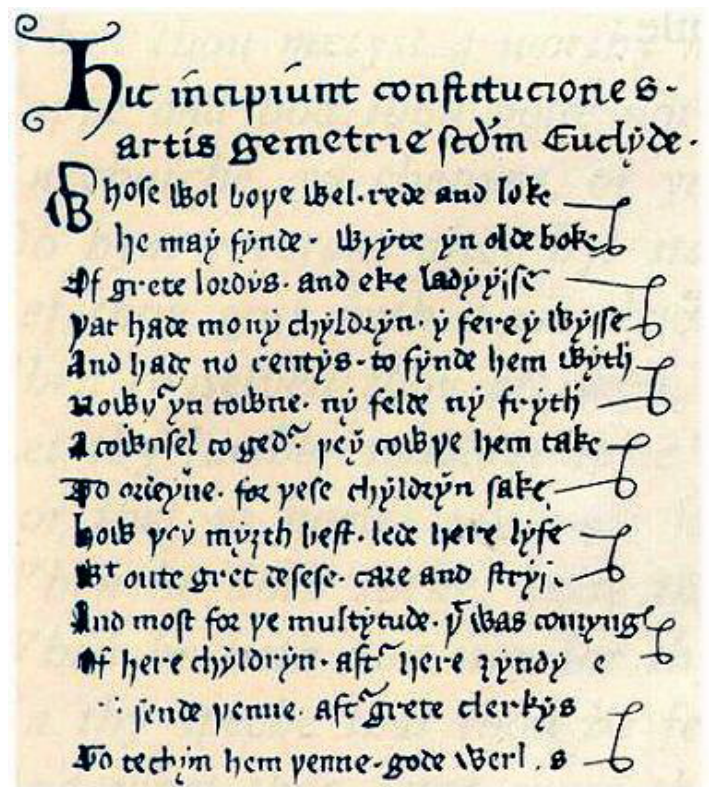 Hic incipiunt constituciones
artis gemetrie scdm Euclyde.
Whose wol boþe wel. rede and loke
he may fynde. wryte yn olde boke
Of grete lordys. and eke ladyysse
þat hade mony chyldryn. y fere y wysse
And hade no rentys. to fynde hem wyth
Nowþ yn towne. ny felde ny fryth
A cownsel to ged þey cowþe hem take
To ordeyne. for þese chyldryn sake
How þey myȝth best. lede here lyfe
Wt oute gret desese. care and
And most for þe multytude. þt was comyng
Of here chyldryn. aft here ȝyndy
sende þenne. aft grete clerkys
To techyn hem þenne. gode